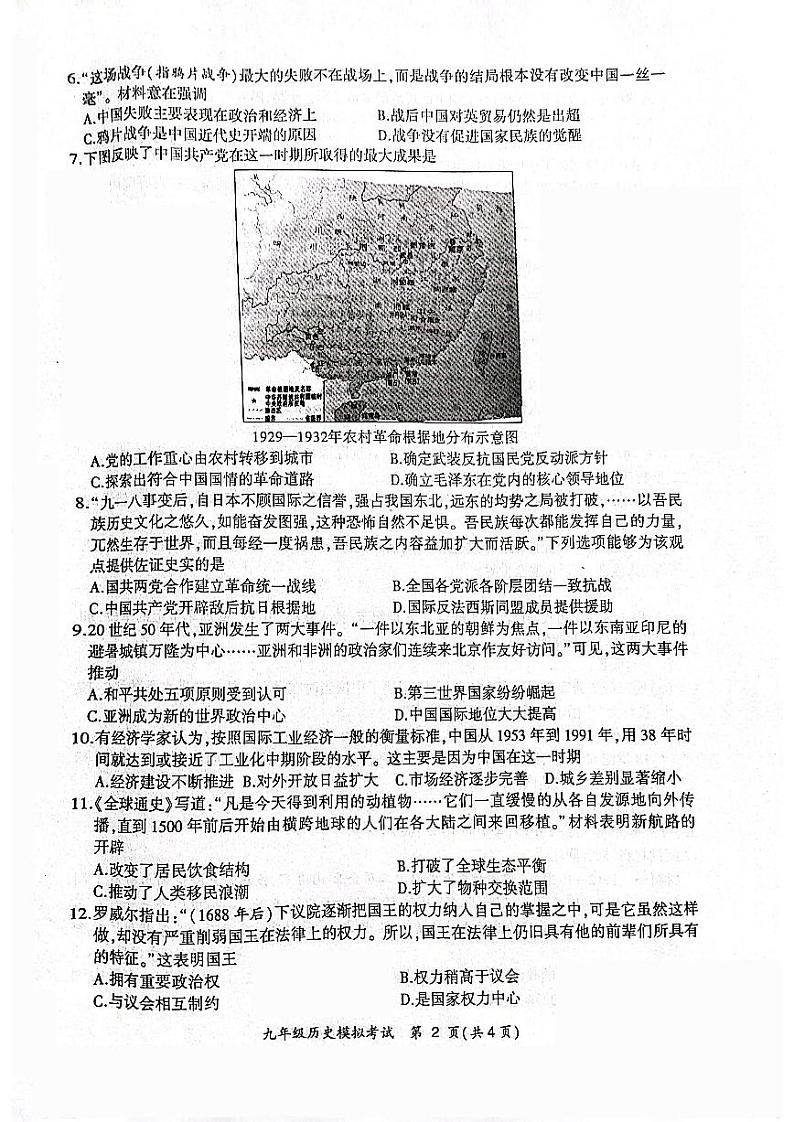 6.“这场战争(指鸦片战争)最大的失败不在战场上,而是战争的结局根本没有改变中国一丝一
毫”。材料意在强调
A.中国失败主要表现在政治和经济上 B.战后中国对英贸易仍然是出超
C.鸦片战争是中国近代史开端的原因 D.战争没有促进国家民族的觉醒
7.下图反映了中国共产党在这一时期所取得的最大成果是
革命根据地及名称
1929—1932年农村革命根据地分布示意图
A.党的工作重心由农村转移到城市 B.确定武装反抗国民党反动派方针
C.探索出符合中国国情的革命道路 D.确立毛泽东在党内的核心领导地位
8.“九一八事变后,自日本不顾国际之信誉,强占我国东北,远东的均势之局被打破,……以吾民
族历史文化之悠久,如能奋发图强,这种恐怖自然不足惧。吾民族每次都能发挥自己的力量,
兀然生存于世界,而且每经一度祸患,吾民族之内容益加扩大而活跃。”下列选项能够为该观
点提供佐证史实的是
A.国共两党合作建立革命统一战线 B.全国各党派各阶层团结一致抗战
C.中国共产党开辟敌后抗日根据地 D.国际反法西斯同盟成员提供援助
9.20世纪50年代,亚洲发生了两大事件。“一件以东北亚的朝鲜为焦点,一件以东南亚印尼的
避暑城镇万隆为中心……亚洲和非洲的政治家们连续来北京作友好访问。”可见,这两大事件
推动
A.和平共处五项原则受到认可 B.第三世界国家纷纷崛起
C.亚洲成为新的世界政治中心 D.中国国际地位大大提高
10.有经济学家认为,按照国际工业经济一般的衡量标准,中国从1953年到1991年,用38年时
间就达到或接近了工业化中期阶段的水平。这主要是因为中国在这一时期
A.经济建设不断推进 B.对外开放日益扩大 C.市场经济逐步完善 D.城乡差别显著缩小
11.《全球通史》写道:“凡是今天得到利用的动植物……它们一直缓慢的从各自发源地向外传
播,直到1500年前后开始由横跨地球的人们在各大陆之间来回移植。”材料表明新航路的
开辟
A.改变了居民饮食结构 B.打破了全球生态平衡
C.推动了人类移民浪潮 D.扩大了物种交换范围
12.罗威尔指出:“(1688年后)下议院逐渐把国王的权力纳人自己的掌握之中,可是它虽然这样
做,却没有严重削弱国王在法律上的权力。所以,国王在法律上仍旧具有他的前辈们所具有
的特征。”这表明国王
A.拥有重要政治权 B.权力稍高于议会
C.与议会相互制约 D.是国家权力中心
九年级历史模拟考试 第 2 页(共4页)